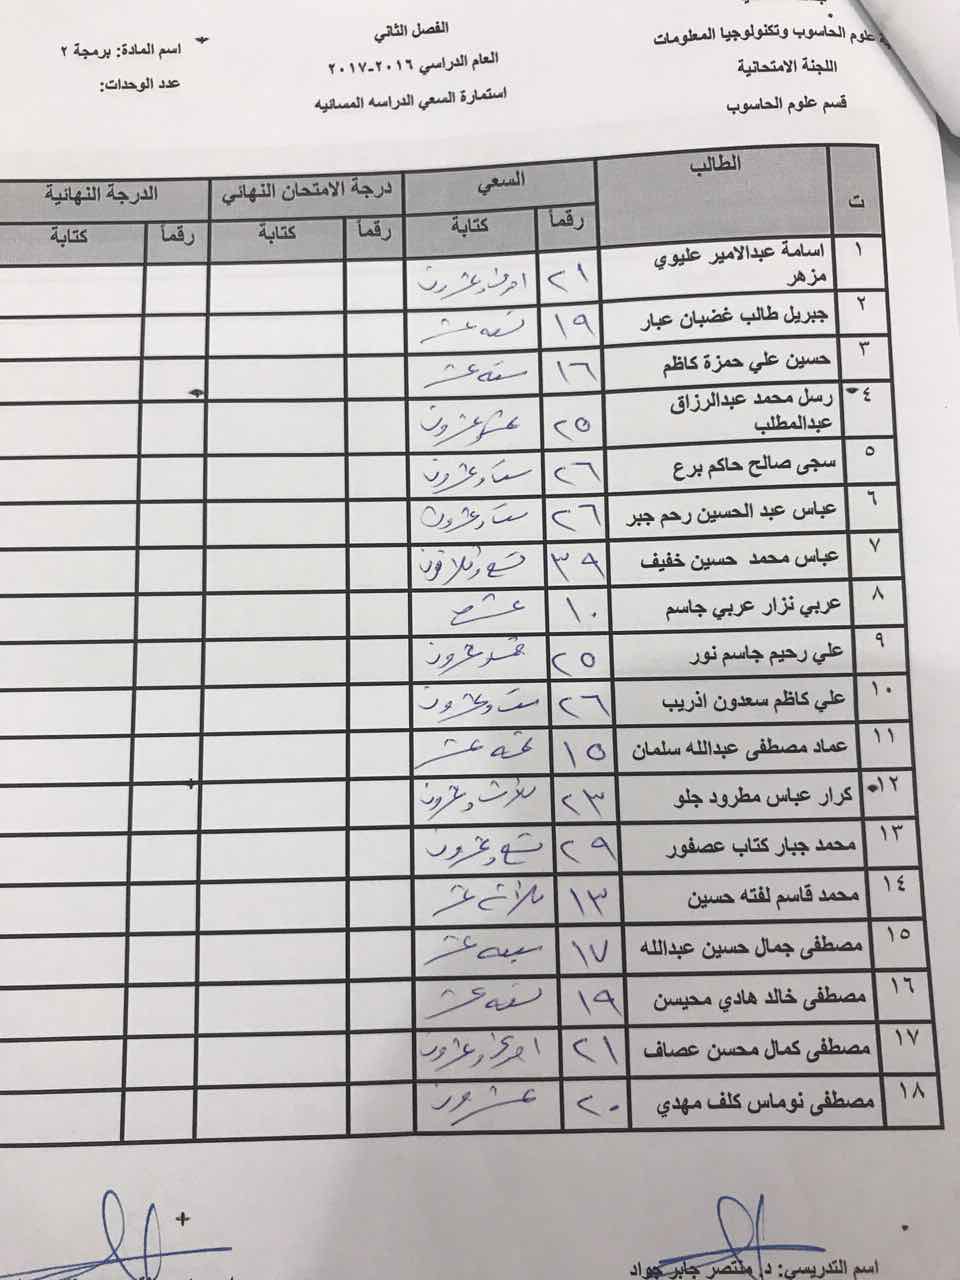 علوم الحاسوب وتكنولوجيا المعلومات
اللجنة الامتحانية
قسم علوم الحاسوب
الفصل الثاني
العام الدراسي ٢٠١٦-٢٠١٧
استمارة السعي الدراسه المسائيه
اسم المادة: برمجة ٢
عدد الوحدات:
ت الطالب السعي درجة الامتحان النهائي الدرجة النهائية
رقماً كتابة رقماً كتابة رقماً كتابة
١ اسامة عبدالامير عليوي ٢١ احدى وعشرون
مزهر
٢ جبريل طالب غضبان عبار ١٩ تسعه عشر
٣ حسين علي حمزة كاظم ١٦ سته عشر
٤ رسل محمد عبدالرزاق ٢٥ خمس وعشرون
عبدالمطلب
٥ سجى صالح حاكم برع ٢٦ ست وعشرون
٦ عباس عبد الحسين رحم جبر ٢٦ ست وعشرون
٧ عباس محمد حسين خفيف ٣٩ تسع وثلاثون
٨ عربي نزار عربي جاسم ١٠ عشر
٩ علي رحيم جاسم نور ٢٥ خمس وعشرون
١٠ علي كاظم سعدون اذريب ٢٦ ست وعشرون
١١ عماد مصطفى عبدالله سلمان ١٥ خمسه عشر
١٢ كرار عباس مطرود جلو ٢٣ ثلاث وعشرون
١٣ محمد جبار كتاب عصفور ٢٩ تسع وعشرون
١٤ محمد قاسم لفته حسين ١٣ ثلاثه عشر
١٥ مصطفى جمال حسين عبدالله ١٧ سبعه عشر
١٦ مصطفى خالد هادي محيسن ١٩ تسعه عشر
١٧ مصطفى كمال محسن عصاف ٢١ احدى وعشرون
١٨ مصطفى نوماس كلف مهدي ٢٠ عشرون
اسم التدريسي: د. منتصر جابر جواد